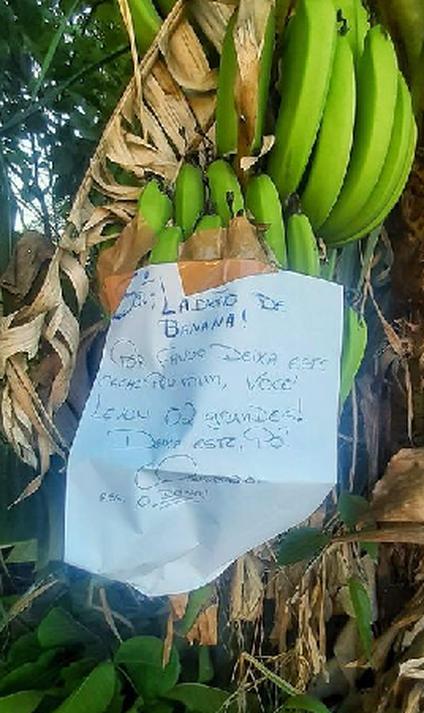 LADRÃO DE
BANANA!
POR FAVOR DEIXA ESTE
CACHO MIM, VOCÊ!
LEVOU 02 GRANDES!
DEIXA ESTE, SÓ!
ASS. O. DONO!